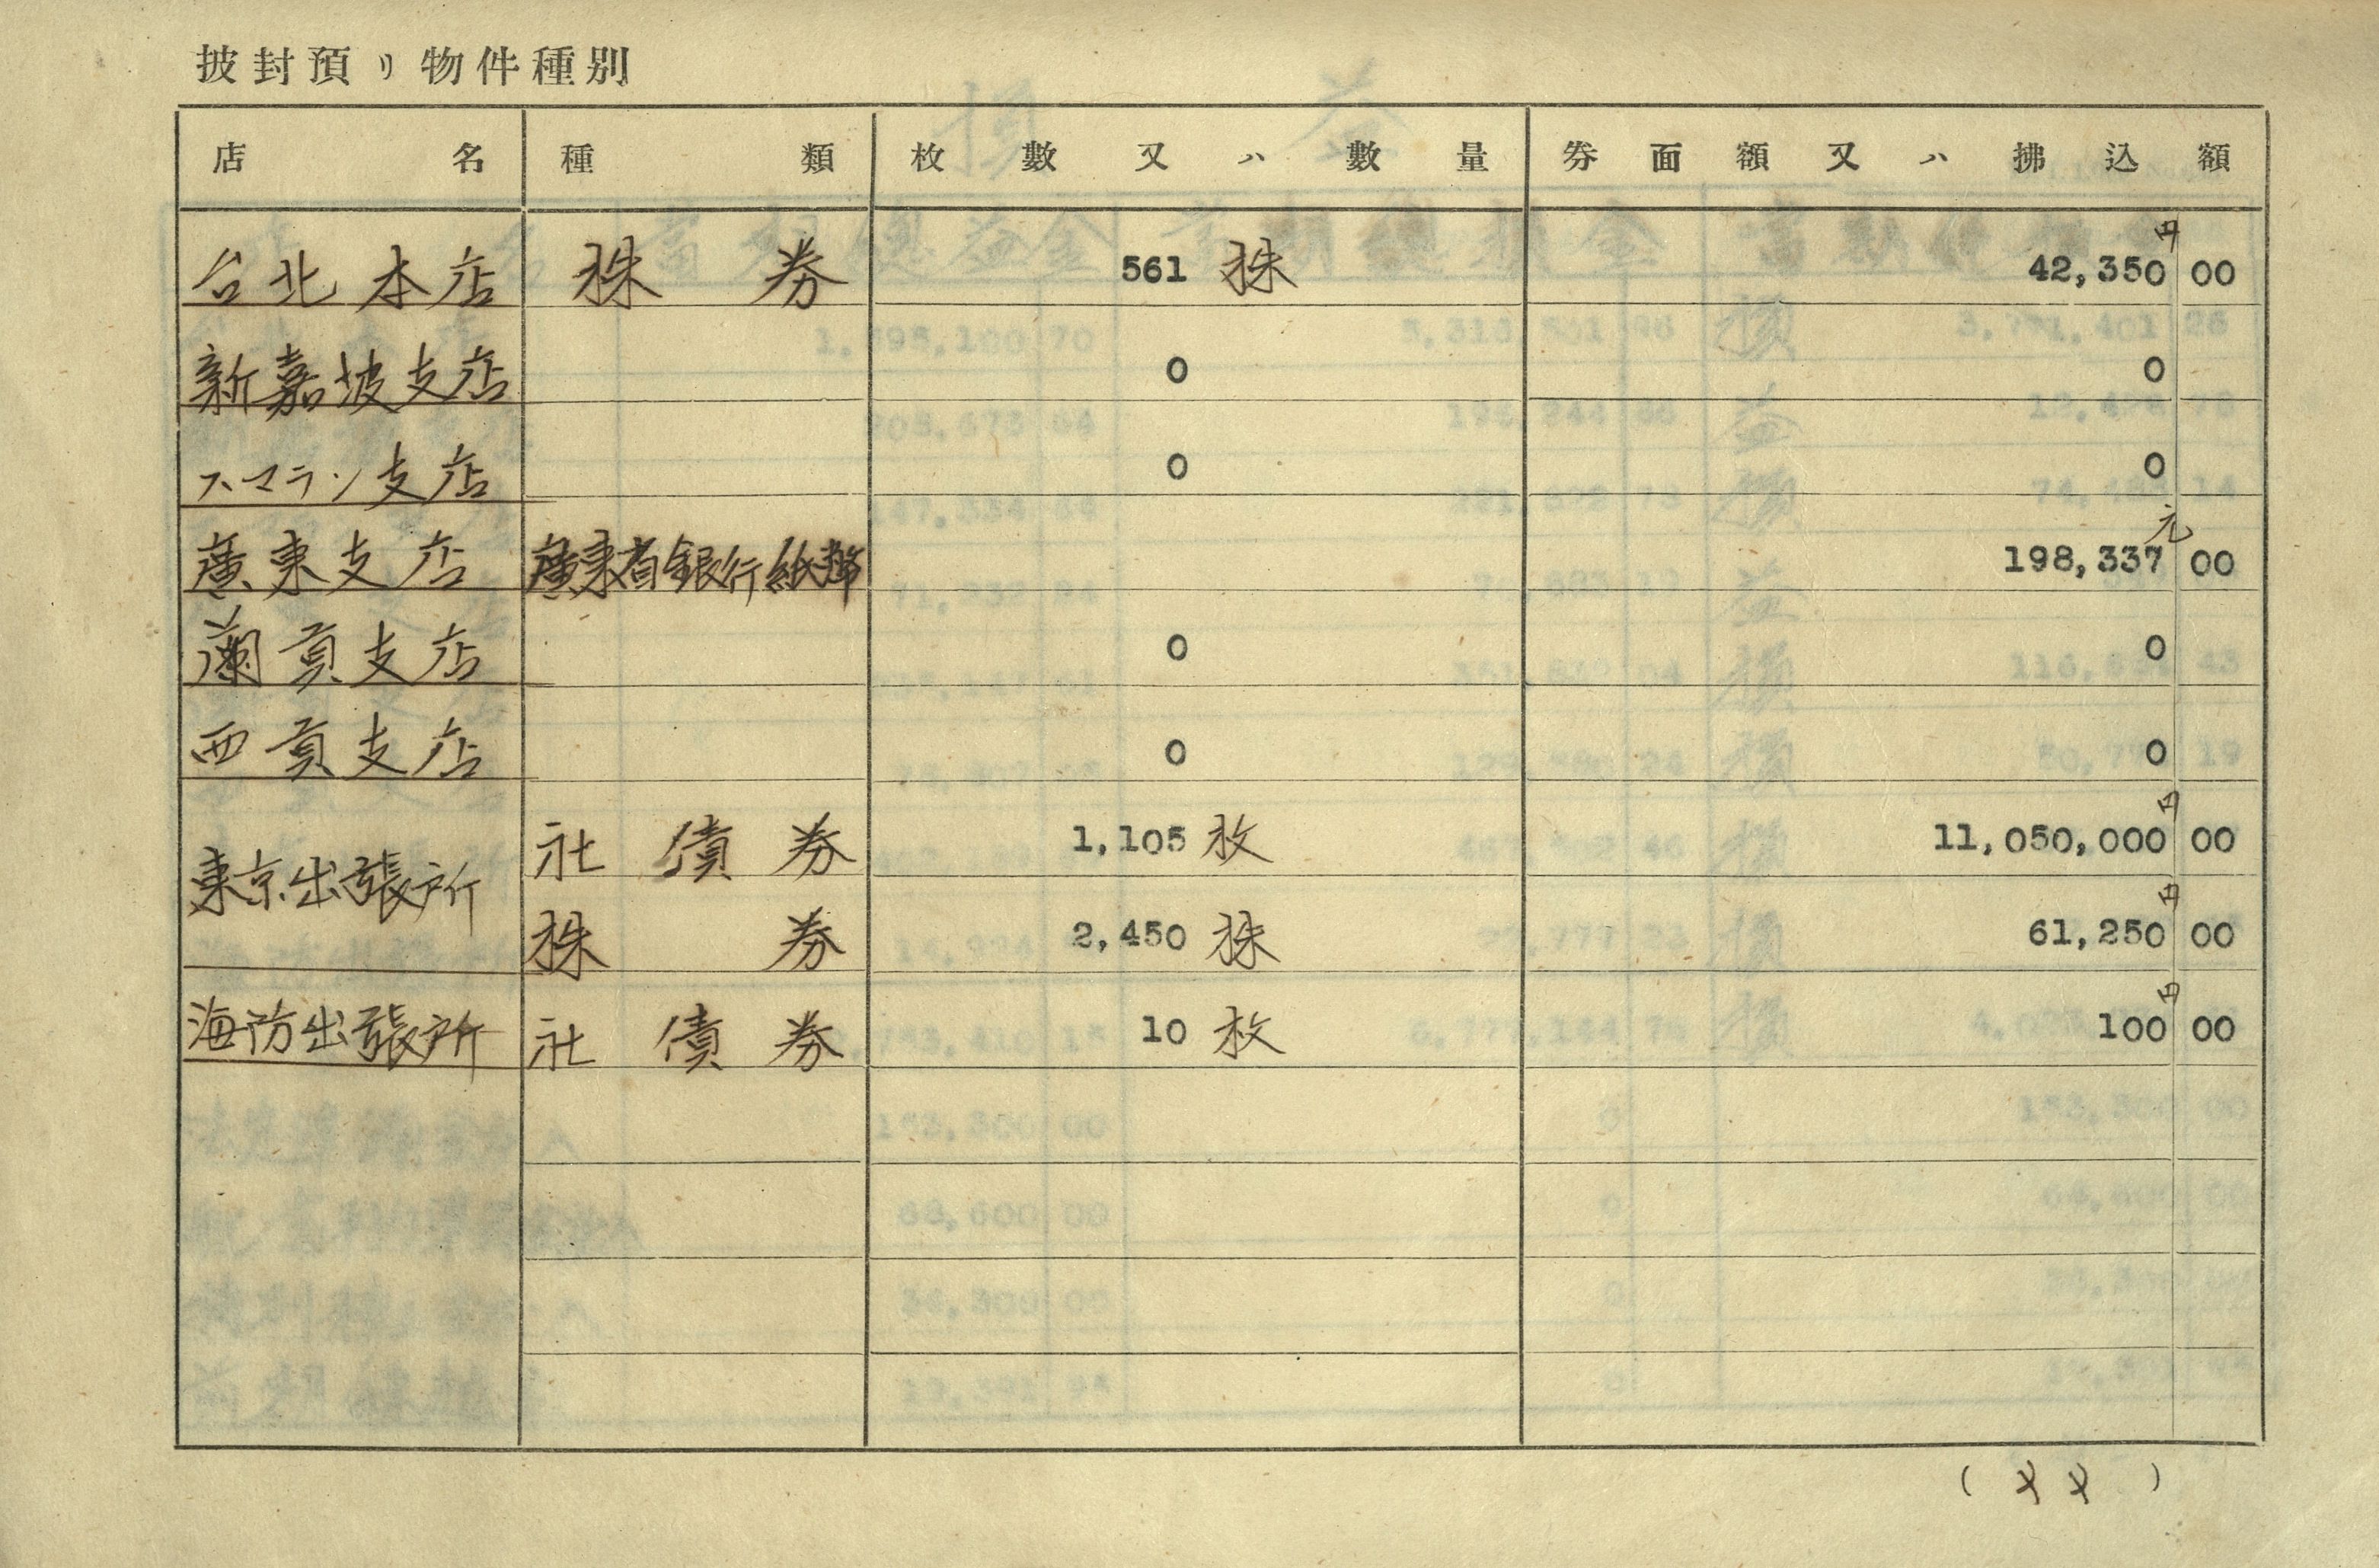 披封預リ物件種別
店名 種類 枚數又ハ數量 券面額又ハ拂込額
台北本店 株券 561 株 42,350円 00
新嘉坡支店 0 0
スマラン支店 0 0
廣東支店 廣東省銀行紙幣 198,337元 00
蘭貢支店 0 0
西貢支店 0 0
東京出張所 社債券 1,105 枚 11,050,000円 00
株券 2,450 株 61,250円 00
海防出張所 社債券 10 枚 100円 00